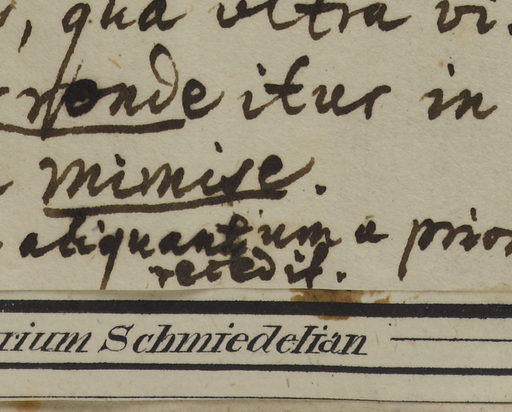 , qua ultra vi
ronde itur in
mimise.
aliquantum a prior
recedit.
rium Schmiedelian